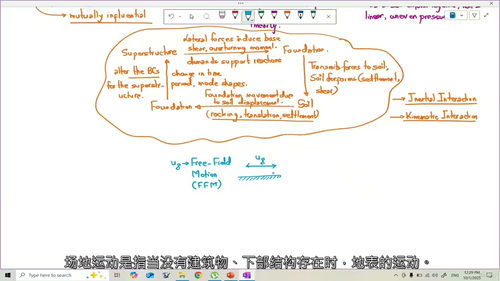 mutually influential
theory.
linear, uneven pressure
Lateral forces induce base
shear, overturning moment.
Superstructure
Foundation.
demands support reactions
alter the BCs
for the superstr-
ucture.
change in time
period, mode shapes.
Transmits forces to soil,
Soil deforms (settlement,
shear)
Foundation movement due
to soil displacement.
Foundation
Soil
(rocking, translation, settlement)
Inertial Interaction
Kinematic Interaction
ug → Free-Field
Motion
(FFM)
ug
场地运动是指当没有建筑物、下部结构存在时，地表的运动。
Type here to search
12:29 PM